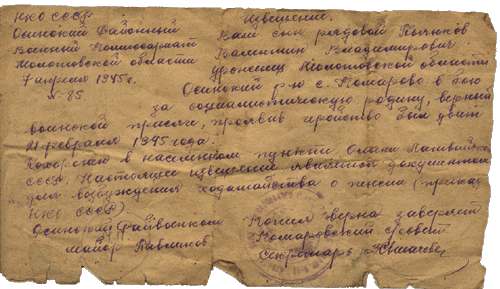 НКО СССР
Осинский Районный
Военный Комиссариат
Молотовской области
7 апреля 1945 г.
№ 85
Извещение.
Ваш сын рядовой
Валентин Владимирович
уроженец Молотовской области
Осинский р-н с. Комарово в бою
за социалистическую родину, верный
воинской присяге, проявив геройство был убит
21 февраля 1945 года.
Похоронен в населенном пункте
ССР. Настоящее извещение является документом
для возбуждения ходатайства о пенсии (приказ
НКО СССР)
Осинский райвоенком
майор
Копия верна заверяет
Комаровский с/совет
Секретарь